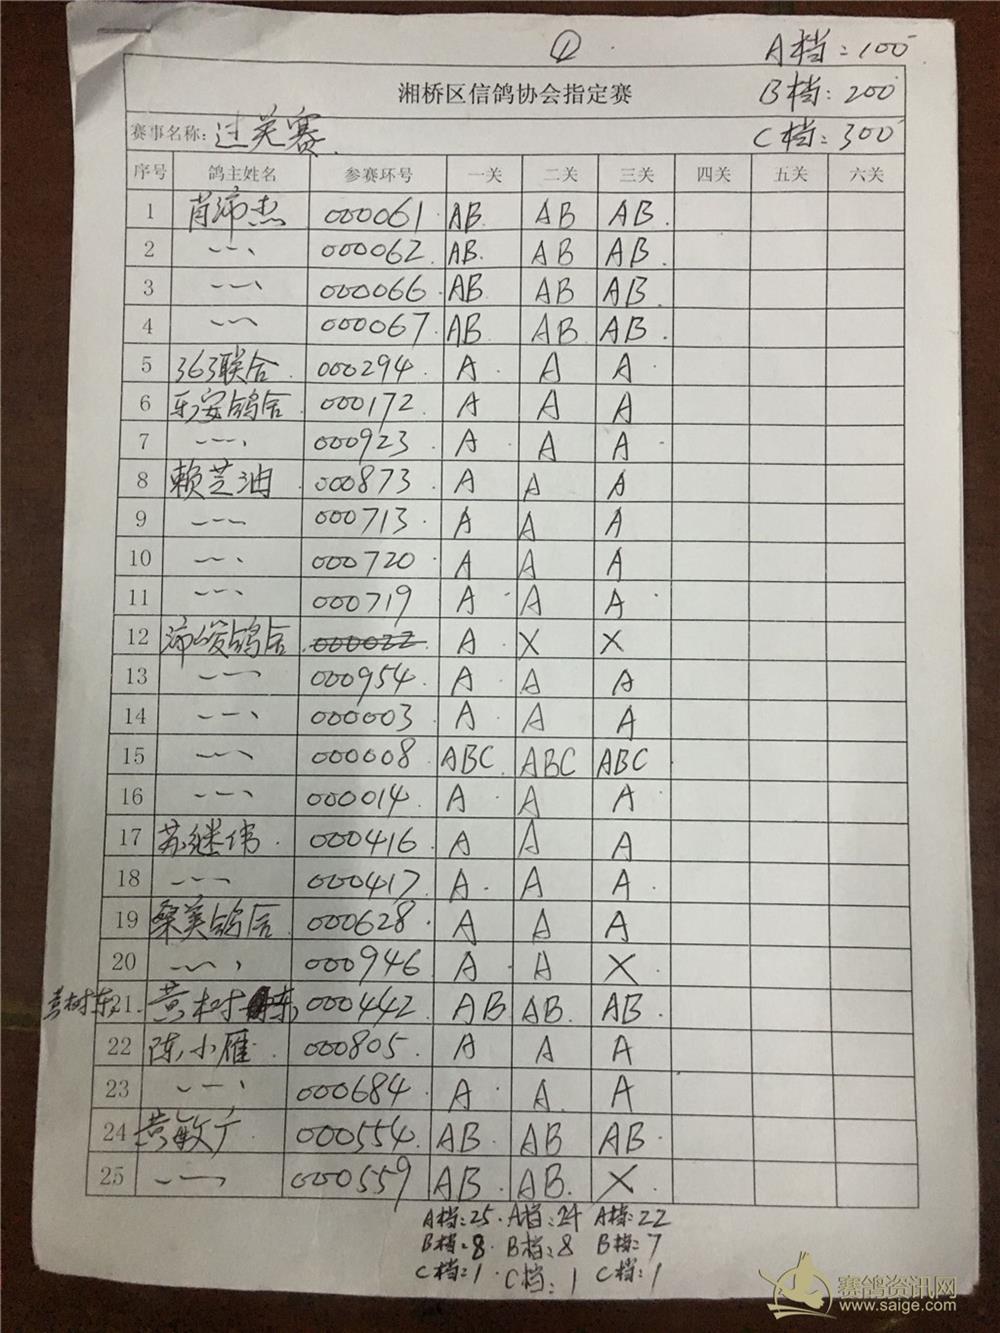 ① A档:100
湘桥区信鸽协会指定赛 B档:200
赛事名称: 过关赛 C档:300
序号 鸽主姓名 参赛环号 一关 二关 三关 四关 五关 六关
1 肖沛杰 000061 AB AB AB
2 000062 AB AB AB
3 000066 AB AB AB
4 000067 AB AB AB
5 363联合 000294 A A A
6 乐安鸽舍 000172 A A A
7 000923 A A A
8 赖芝油 000873 A A A
9 000713 A A A
10 000720 A A A
11 000719 A A A
12 沛俊鸽舍 000022 A X X
13 000954 A A A
14 000003 A A A
15 000008 ABC ABC ABC
16 000014 A A A
17 苏继伟 000416 A A A
18 000417 A A A
19 桑美鸽舍 000628 A A A
20 000946 A A X
黄树东 21 黄树东 000442 AB AB AB
22 陈小雁 000805 A A A
23 000684 A A A
24 黄敏广 000554 AB AB AB
25 000559 AB AB X
A档:25 A档:24 A档:22
B档:8 B档:8 B档:7
C档:1 C档:1 C档:1
赛鸽资讯网
www.saige.com